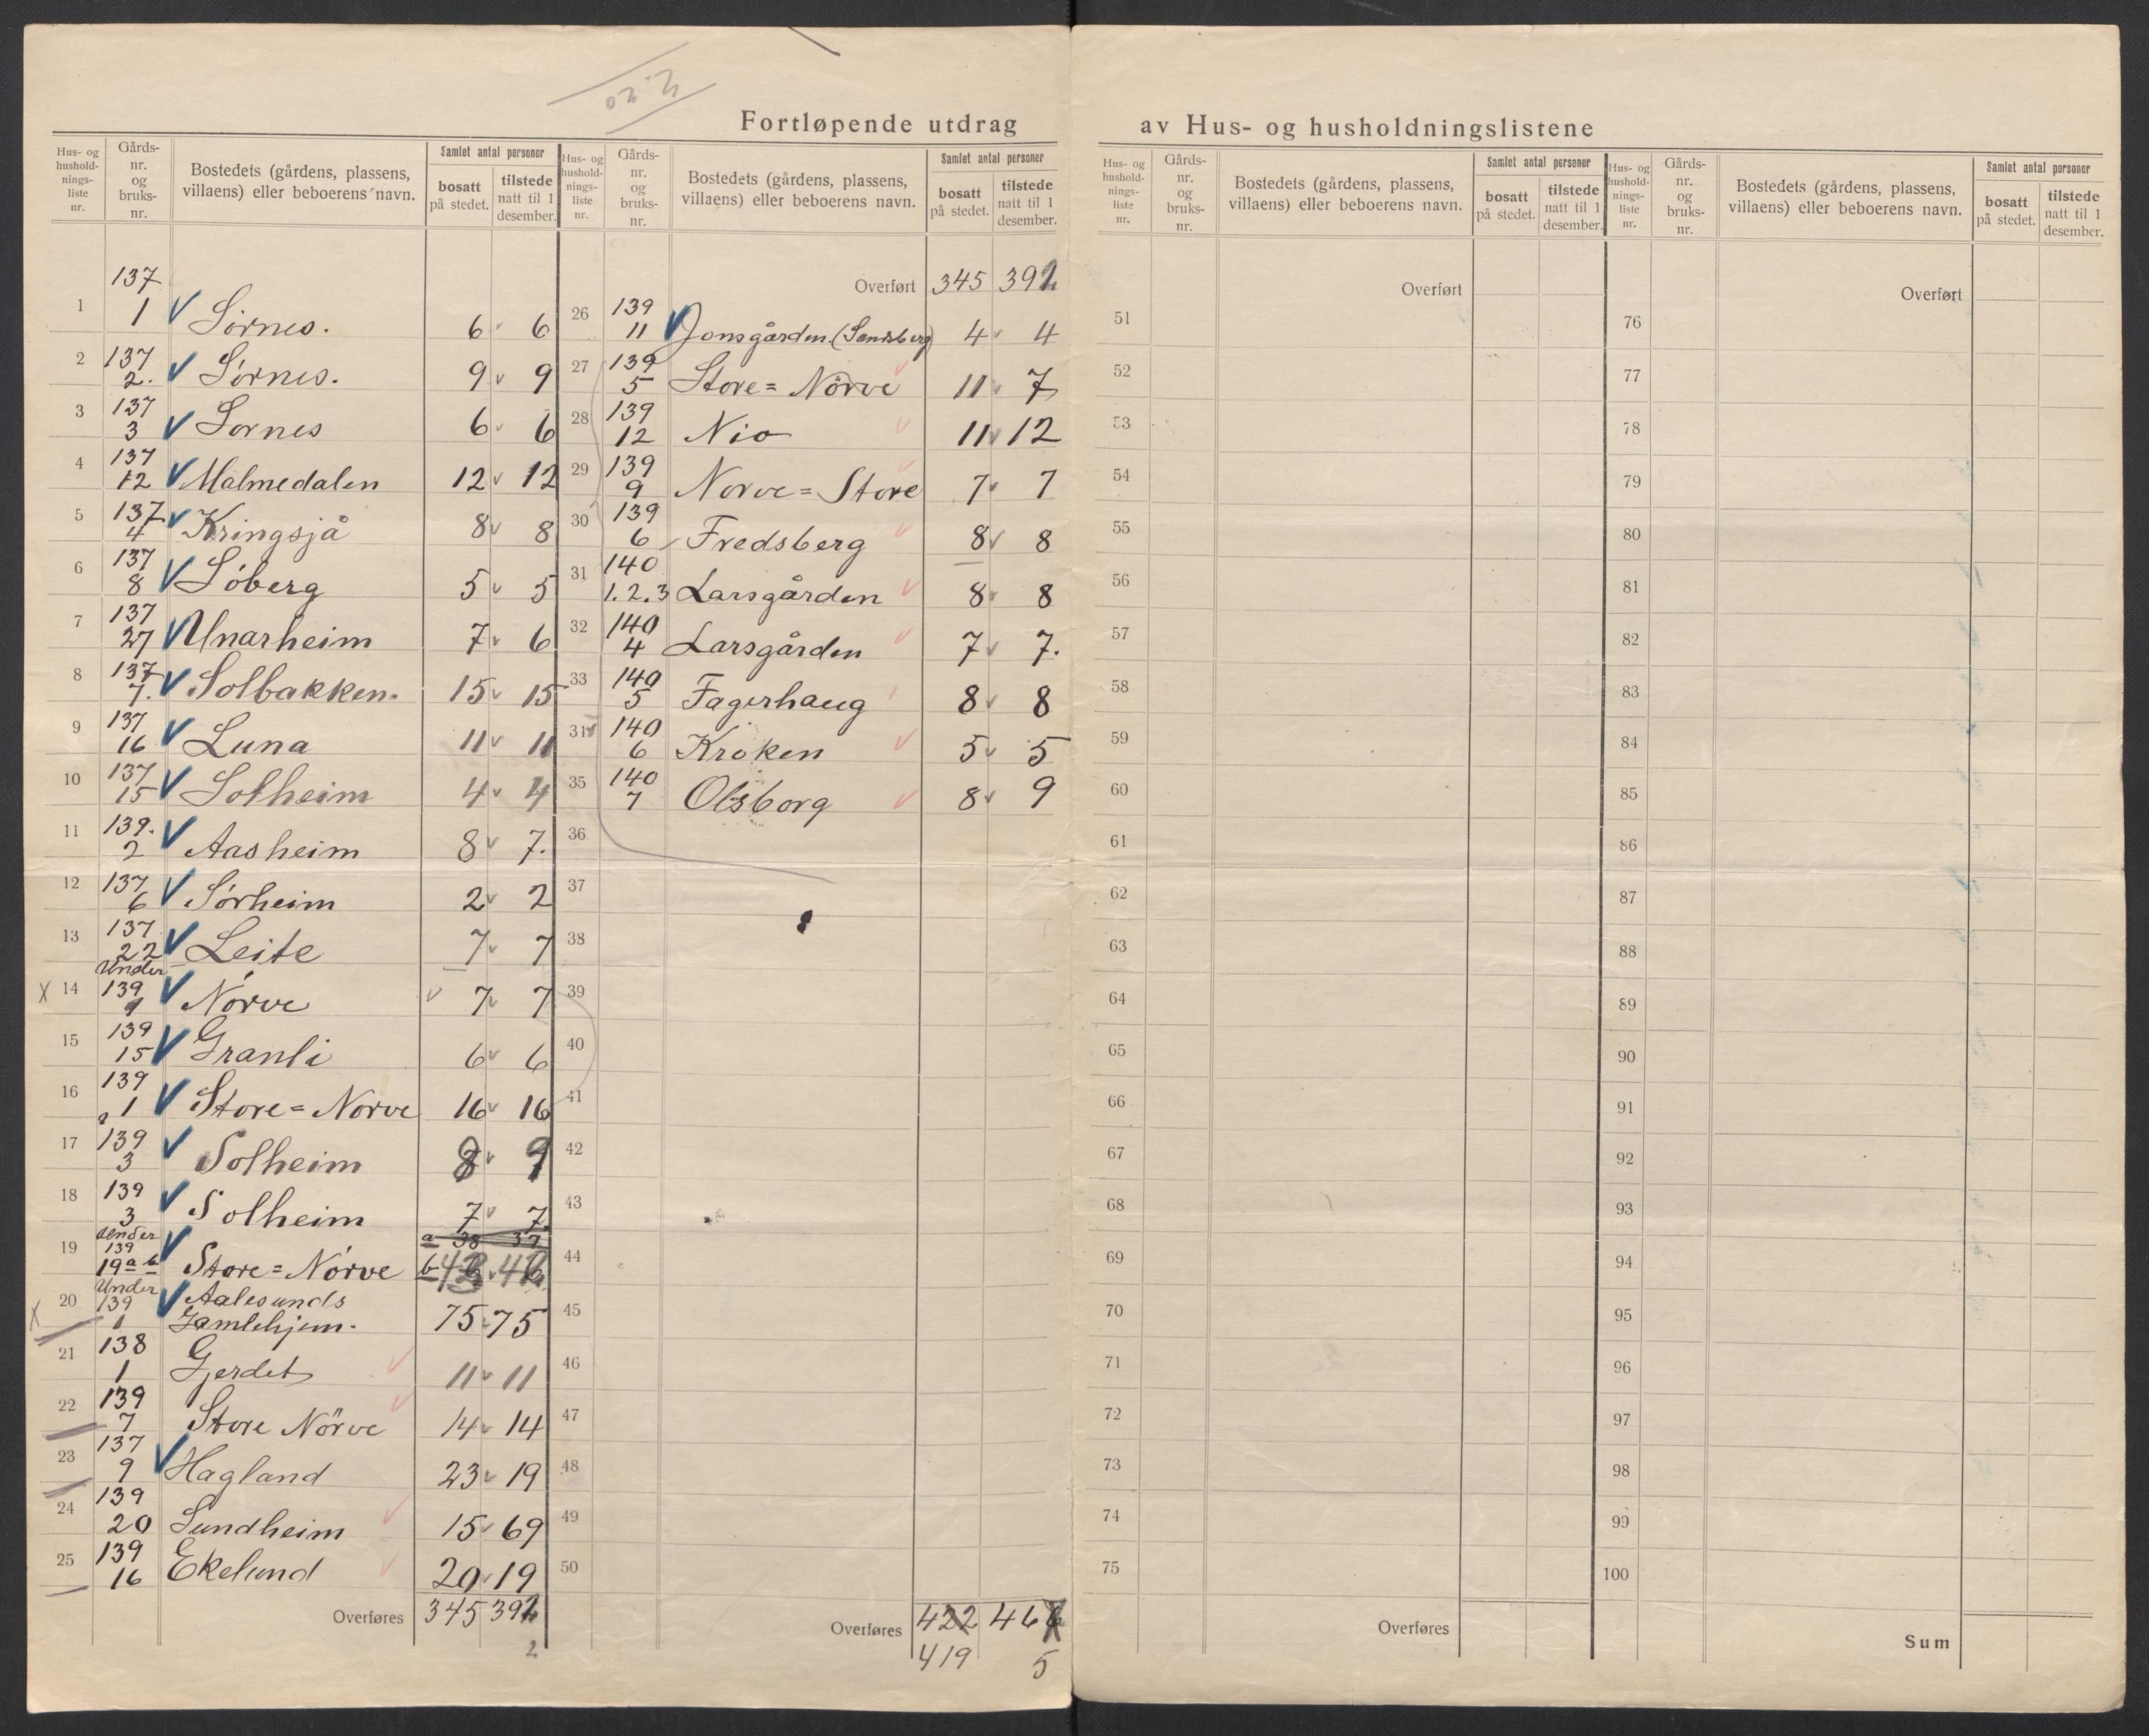 Fortløpende utdrag av Hus- og husholdningslistene
Hus- og husholdnings-liste nr.
Gårds-nr. og bruks-nr.
Bostedets (gårdens, plassens, villaens) eller beboerens navn.
Samlet antal personer
bosatt på stedet.
tilstede natt til 1 desember.
1 137 1 Sörnes. 6 6
2 137 2. Sörnes. 9 9
3 137 3 Sornes 6 6
4 137 12 Malmedalen 12 12
5 137 4 Kringsjå 8 8
6 137 8 Söberg 5 5
7 137 27 Unarheim 7 6
8 137 7. Solbakken. 15 15
9 137 16 Luna 11 11
10 137 15 Solheim 4 4
11 139. 2 Aasheim 8 7.
12 137 6 Sörheim 2 2
13 137 22 Leite 7 7
14 Under 139 1 Nörve 7 7
15 139 15 Granli 6 6
16 139 1 Store=Nörve 16 16
17 139 3 Solheim 8 9
18 139 3 Solheim 7 7
19 Under 139 19 a b Store=Nörve a 38 37
b
20 Under 139 1 Aalesunds
Gamlehjem. 75 75
21 138 1 Gjerdet 11 11
22 139 7 Store Nörve 14 14
23 137 9 Hagland 23 19
24 139 20 Sundheim 15 69
25 139 16 Ekelund 20 19
Overføres 345 392
2
Hus- og husholdnings-liste nr.
Gårds-nr. og bruks-nr.
Bostedets (gårdens, plassens, villaens) eller beboerens navn.
Samlet antal personer
bosatt på stedet.
tilstede natt til 1 desember.
Overført 345 392
26 139 11 Jonsgården (Sandsberg) 4 4
27 139 5 Store=Nörve 11 7
28 139 12 Nio 11 12
29 139 9 Norve=Store 7 7
30 139 6 Fredsberg 8 8
31 140 1.2.3 Larsgården 8 8
32 140 4 Larsgården 7 7.
33 140 5 Fagerhaug 8 8
34 140 6 Kroken 5 5
35 140 7 Olsborg 8 9
36
37
38
39
40
41
42
43
44
45
46
47
48
49
50
Overføres 422 466
419 5
Hus- og husholdnings-liste nr.
Gårds-nr. og bruks-nr.
Bostedets (gårdens, plassens, villaens) eller beboerens navn.
Samlet antal personer
bosatt på stedet.
tilstede natt til 1 desember.
Overført
51
52
53
54
55
56
57
58
59
60
61
62
63
64
65
66
67
68
69
70
71
72
73
74
75
Overføres
Hus- og husholdnings-liste nr.
Gårds-nr. og bruks-nr.
Bostedets (gårdens, plassens, villaens) eller beboerens navn.
Samlet antal personer
bosatt på stedet.
tilstede natt til 1 desember.
Overført
76
77
78
79
80
81
82
83
84
85
86
87
88
89
90
91
92
93
94
95
96
97
98
99
100
Sum